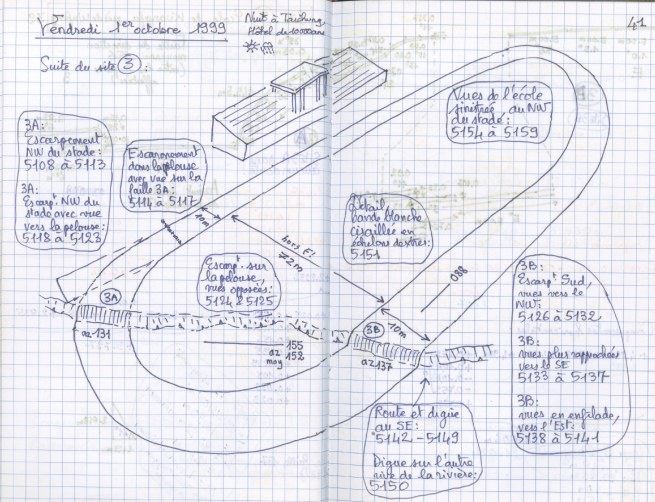 Vendredi 1er octobre 1999
Nuit à Taichung,
Hôtel de
41
Suite du site 3 :
3A:
Escarpement
NW du stade:
5108 à 5113
3A:
Escarpt. NW du
stade avec vue
vers la pelouse:
5118 à 5123
Escarpement
dans la pelouse
avec vue sur la
faille 3A:
5114 à 5117
Vues de l'école
sinistrée au NW
du stade:
5154 à 5159
Détail
bande blanche
cisaillée en
échelons dextres:
5151
10m
hors F!
72m
Escarpt. sur
la pelouse,
vues opposées:
5124 à 5125
088
3A
az 131
3B
10m
az 137
155
az 152
moy
3B:
Escarpt Sud,
vues vers le
NW:
5126 à 5132
3B:
vues plus rapprochées
vers le SE
5133 à 5137
3B:
vues en enfilade,
vers l'Est:
5138 à 5141
Route et digue
au SE:
5142 - 5149
Digue sur l'autre
rive de la rivière:
5150